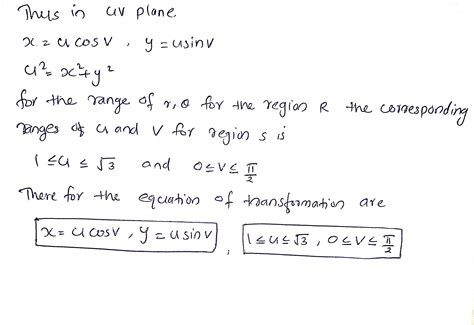 Thus in uv plane
x = u cos v , y = u sin v
u² = x² + y²
for the range of r, θ for the region R the corresponding
ranges of u and v for region s is
1 ≤ u ≤ √3 and 0 ≤ v ≤ π/2
There for the equation of transformation are
x = u cos v , y = u sin v , 1 ≤ u ≤ √3 , 0 ≤ v ≤ π/2